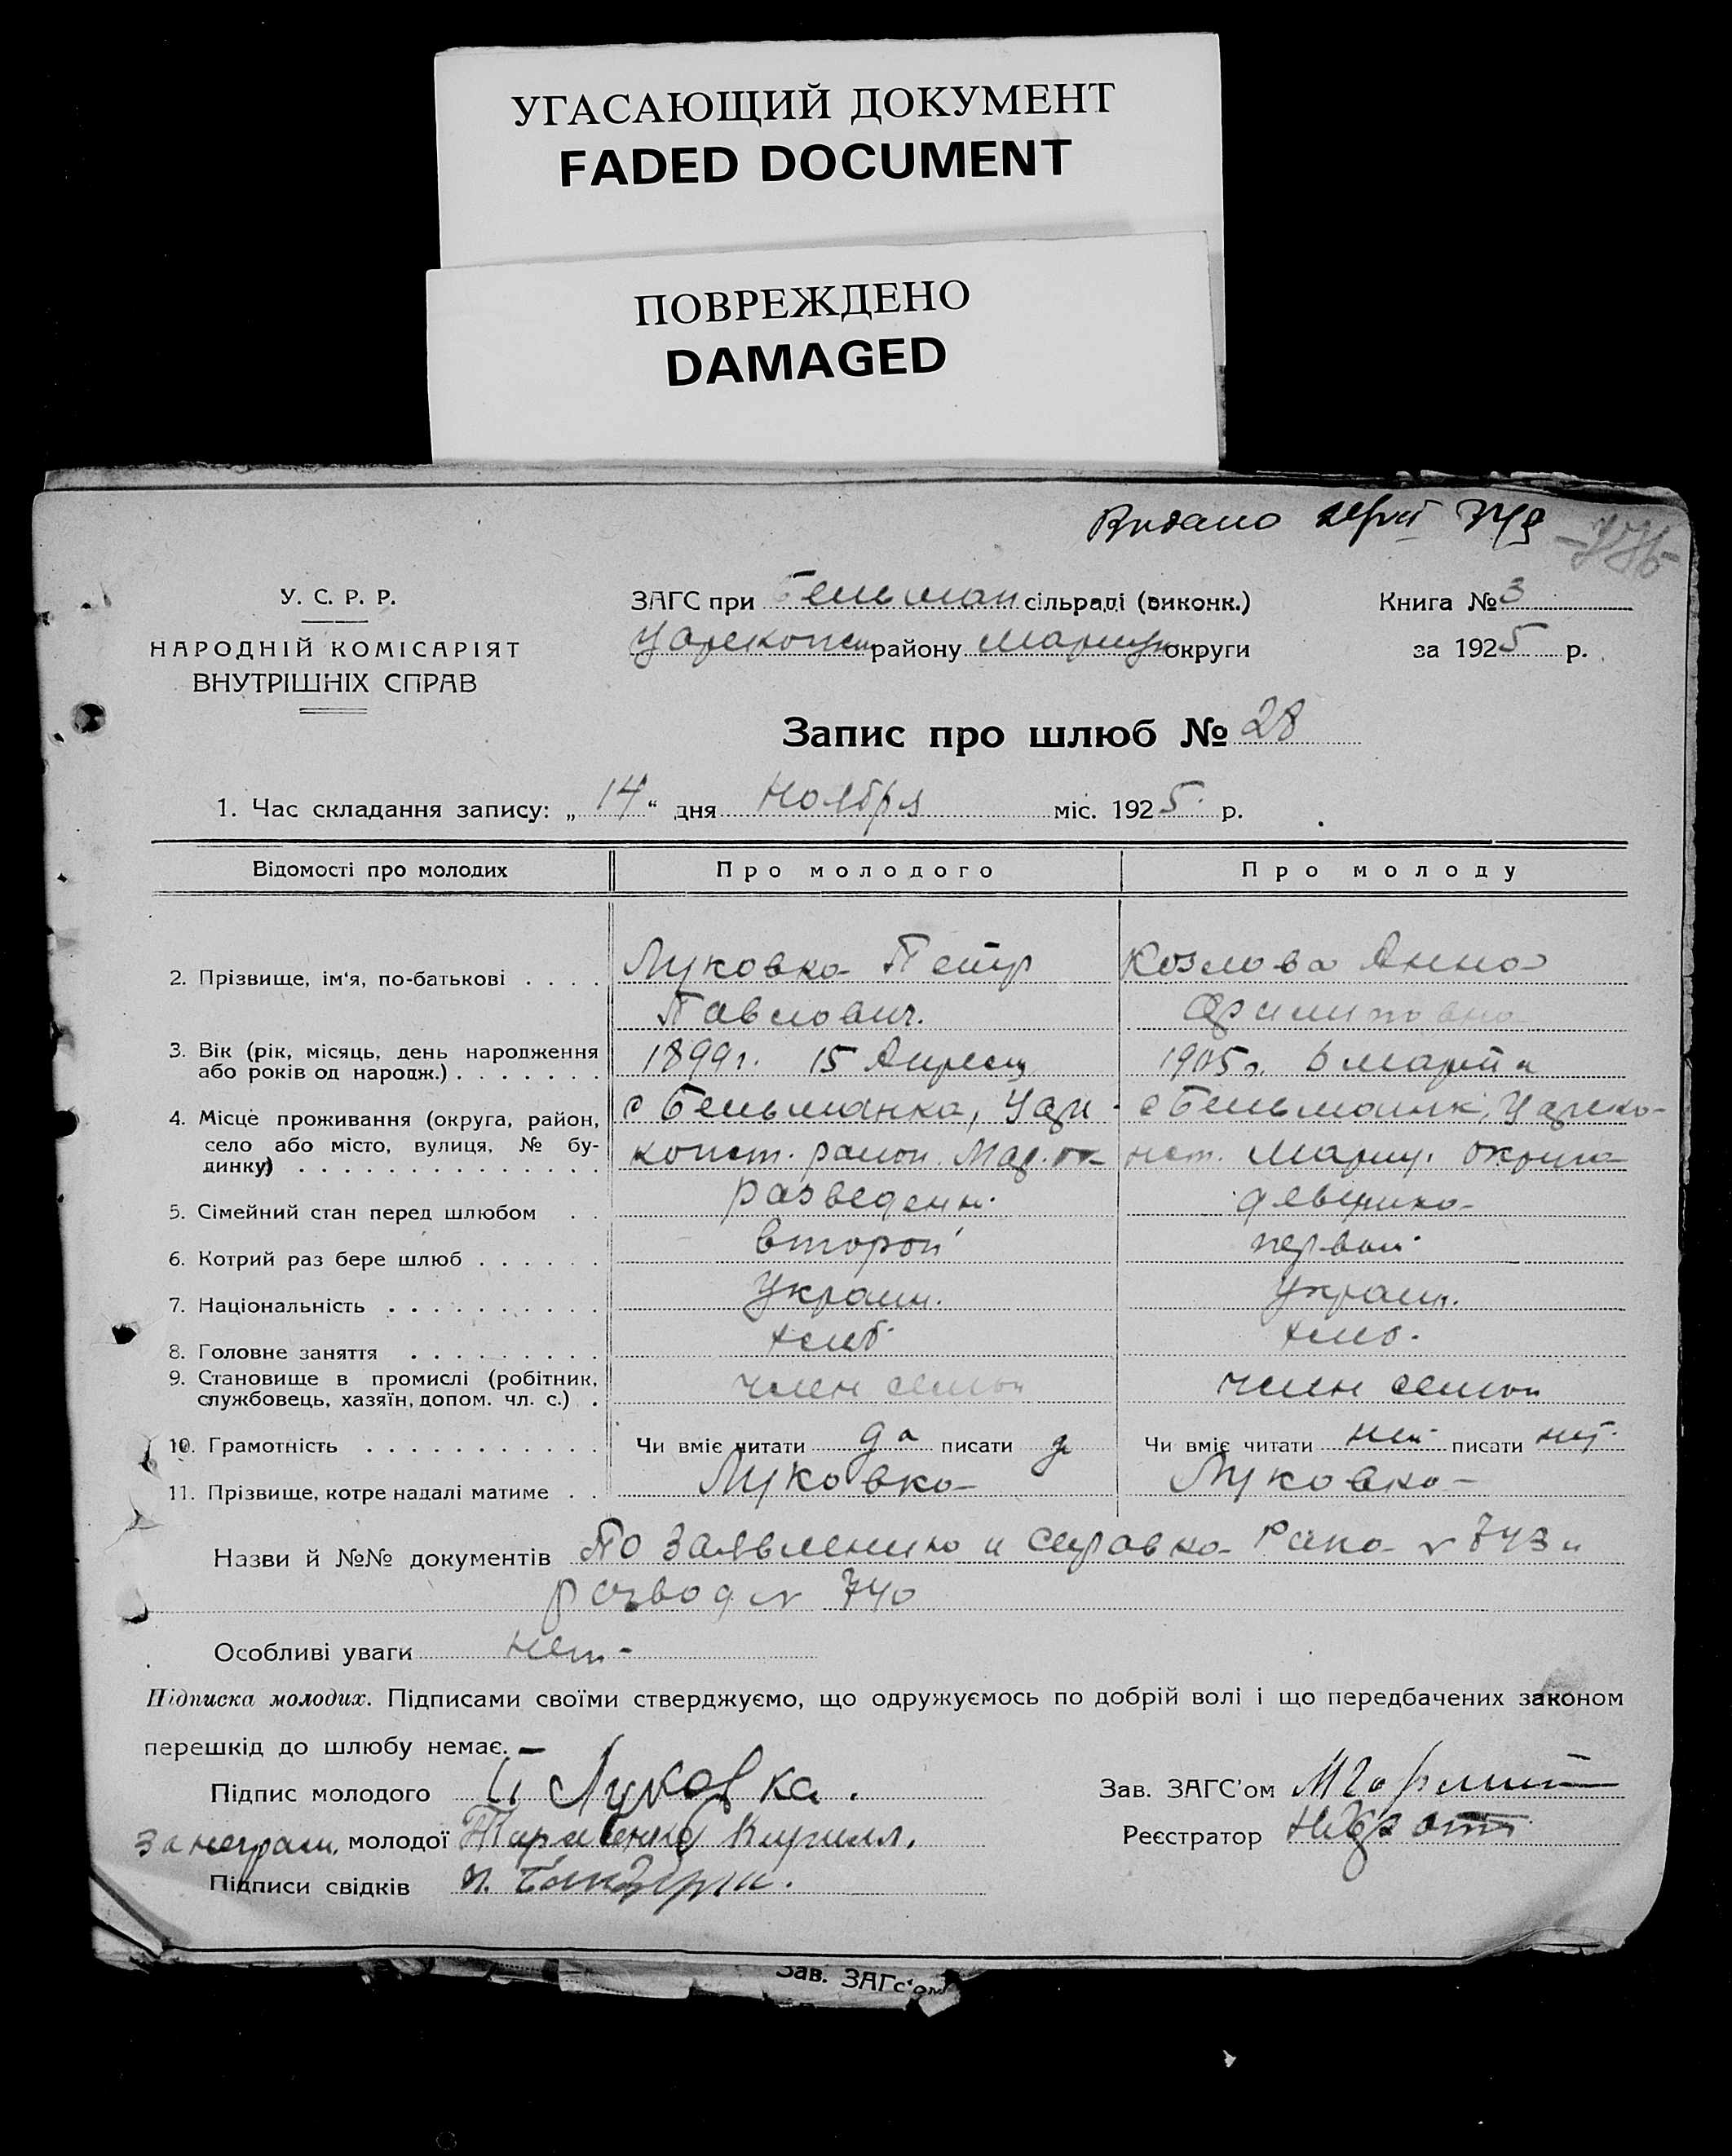 УГАСАЮЩИЙ ДОКУМЕНТ
FADED DOCUMENT
ПОВРЕЖДЕНО
DAMAGED
Видано
У. С. Р. Р.
НАРОДНІЙ КОМІСАРІЯТ
ВНУТРІШНІХ СПРАВ
ЗАГС при Бельман сільраді (виконк.)
Царекопст району Мариуп округи
Книга № 3
за 1925 р.
Запис про шлюб № 28
1. Час складання запису: „14“ дня Ноября міс. 1925 р.
Відомості про молодих Про молодого Про молоду
2. Прізвище, ім'я, по-батькові . . . . Луковка Петр Козлова Анна
Павлович. Филиповна
3. Вік (рік, місяць, день народження
або років од народж.) . . . . . . . 1899 г. 15 Апреля 1905 г. 6 марта
4. Місце проживання (округа, район,
село або місто, вулиця, № будинку) с Бельманка, Царе- с Бельманк, Царско-
конст. район. Мар. ок нст. Мариу. округа
5. Сімейний стан перед шлюбом . . разведенн. девушка
6. Котрий раз бере шлюб . . . . . . второй первый
7. Національність . . . . . . . . . . Украин. Украин.
8. Головне заняття . . . . . . . . . хлеб. хлеб.
9. Становище в промислі (робітник,
службовець, хазяїн, допом. чл. с.) . член семьи член семьи
10. Грамотність . . . . . . . . . . . Чи вміє читати да писати д Чи вміє читати нет писати нет
11. Прізвище, котре надалі матиме . . Луковка Луковка
Назви й №№ документів По заявлению и справка № 743 и
развод № 740
Особливі уваги нет
Підписка молодих. Підписами своїми стверджуємо, що одружуємось по добрій волі і що передбачених законом
перешкід до шлюбу немає.
Підпис молодого Луковка. Зав. ЗАГС'ом
За неграм. молодої Тарабенко Кирилл. Реєстратор
Підписи свідків
Зав. ЗАГс'ом